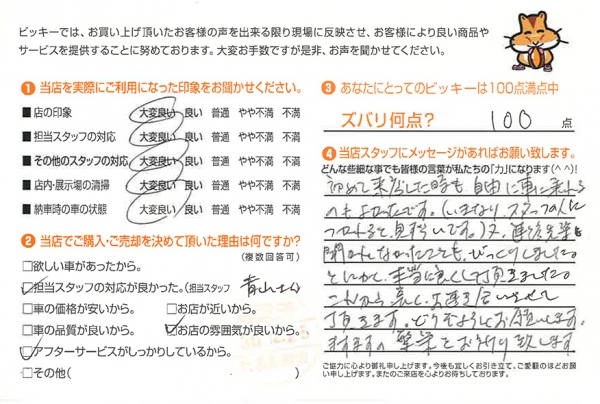 ビッキーでは、お買い上げ頂いたお客様の声を出来る限り現場に反映させ、お客様により良い商品や
サービスを提供することに努めております。大変お手数ですが是非、お声を聞かせてください。
❶ 当店を実際にご利用になった印象をお聞かせください。
■ 店の印象 大変良い 良い 普通 やや不満 不満
■ 担当スタッフの対応 大変良い 良い 普通 やや不満 不満
■ その他のスタッフの対応 大変良い 良い 普通 やや不満 不満
■ 店内・展示場の清掃 大変良い 良い 普通 やや不満 不満
■ 納車時の車の状態 大変良い 良い 普通 やや不満 不満
❷ 当店でご購入・ご売却を決めて頂いた理由は何ですか?
(複数回答可)
□欲しい車があったから。
□担当スタッフの対応が良かった。(担当スタッフ 青山さん)
□車の価格が安いから。 □お店が近いから。
□車の品質が良いから。 □お店の雰囲気が良いから。
□アフターサービスがしっかりしているから。
□その他( )
❸ あなたにとってのビッキーは100点満点中
ズバリ何点? 100 点
❹ 当店スタッフにメッセージがあればお願い致します。
どんな些細な事でも皆様の言葉が私たちの「力」になります(^^)!
初めて来店した時も、自由に車に乗れる
のもよかったです。(いきなり、スタッフの人に
つかれると、見づらいです。)又、
なかったことも、びっくりしました。
とにかく、本当に良くして頂きました。
これからも、お付き合いさせて
頂きます。どうぞよろしくお願いします。
ますますの繁栄をお祈り致します。
ご協力に心より御礼申し上げます。今後も宜しくお引き立て、ご愛顧のほどお
願い申し上げます。またのご来店を心よりお待ちしております。